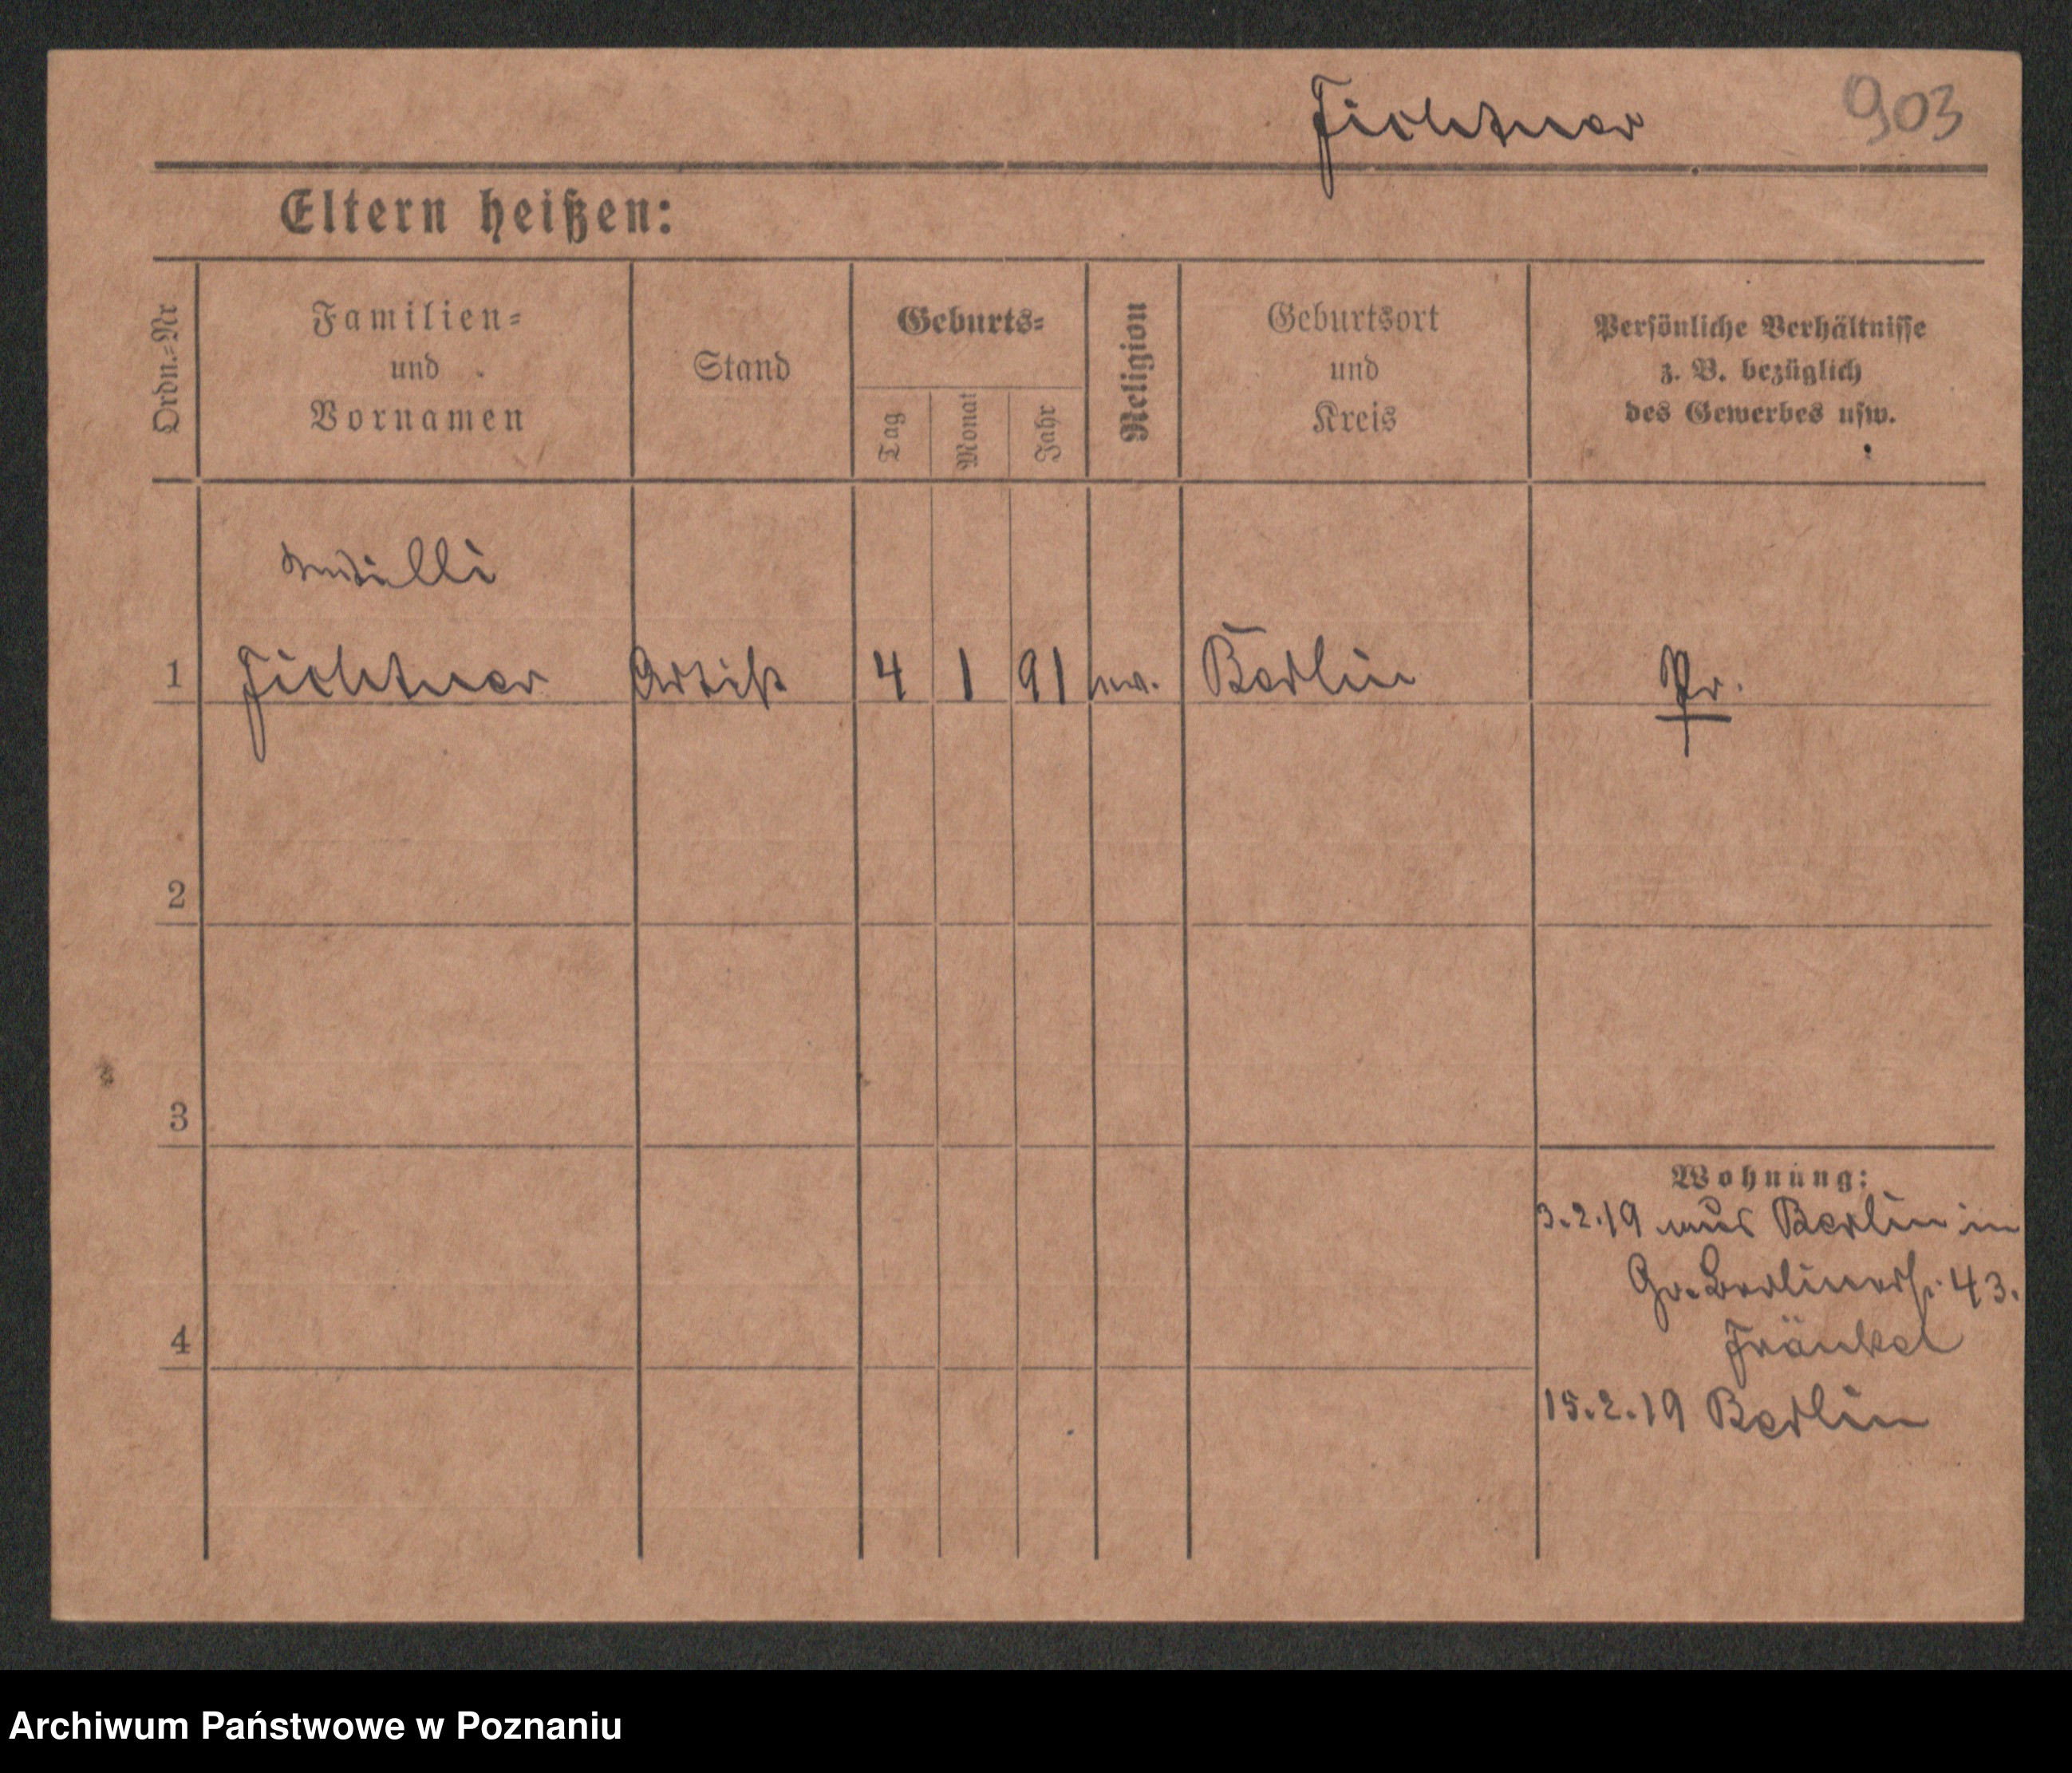 Fichtner 903
Eltern heißen:
Ordn.=Nr
Familien=
und
Vornamen
Stand
Geburts=
Tag
Monat
Jahr
Religion
Geburtsort
und
Kreis
Persönliche Verhältnisse
z. B. bezüglich
des Gewerbes usw.
Willi
1 Fichtner Artist 4 1 91 Berlin Pr.
2
3
Wohnung:
3.2.19 aus Berlin in
Gr. Berlinerst. 43.
Fränkel
4
15.2.19 Berlin
Archiwum Państwowe w Poznaniu